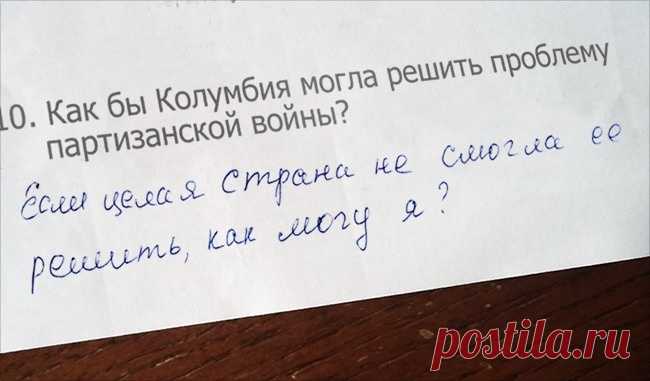 10. Как бы Колумбия могла решить проблему
партизанской войны?
Если целая страна не смогла ее
решить, как могу я?
postila.ru